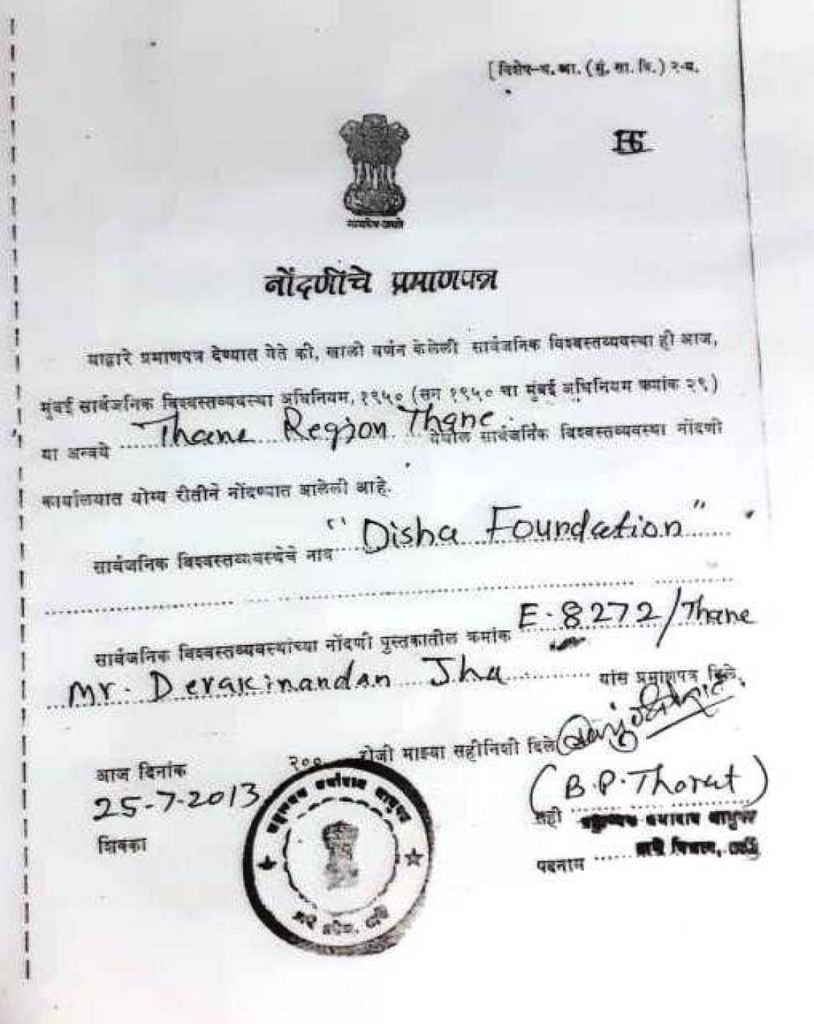 [ विशेष-ध. आ. (मुं. सा. वि.) २-म.
सत्यमेव जयते
नोंदणीचे प्रमाणपत्र
याद्वारे प्रमाणपत्र देण्यात येते की, खाली वर्णन केलेली सार्वजनिक विश्वस्तव्यवस्था ही आज,
मुंबई सार्वजनिक विश्वस्तव्यवस्था अधिनियम, १९५० (सन १९५० चा मुंबई अधिनियम क्रमांक २९)
या अन्वये Thane Region Thane. येथील सार्वजनिक विश्वस्तव्यवस्था नोंदणी
कार्यालयात योग्य रीतीने नोंदण्यात आलेली आहे.
सार्वजनिक विश्वस्तव्यवस्थेचे नाव "Disha Foundation"
सार्वजनिक विश्वस्तव्यवस्थांच्या नोंदणी पुस्तकातील क्रमांक E-8272/Thane
Mr. Devakinandan Jha यांस प्रमाणपत्र दिले.
आज दिनांक २०० रोजी माझ्या सहीनिशी दिले
25-7-2013
(B.P. Thorat)
शिक्का
सही
पदनाम